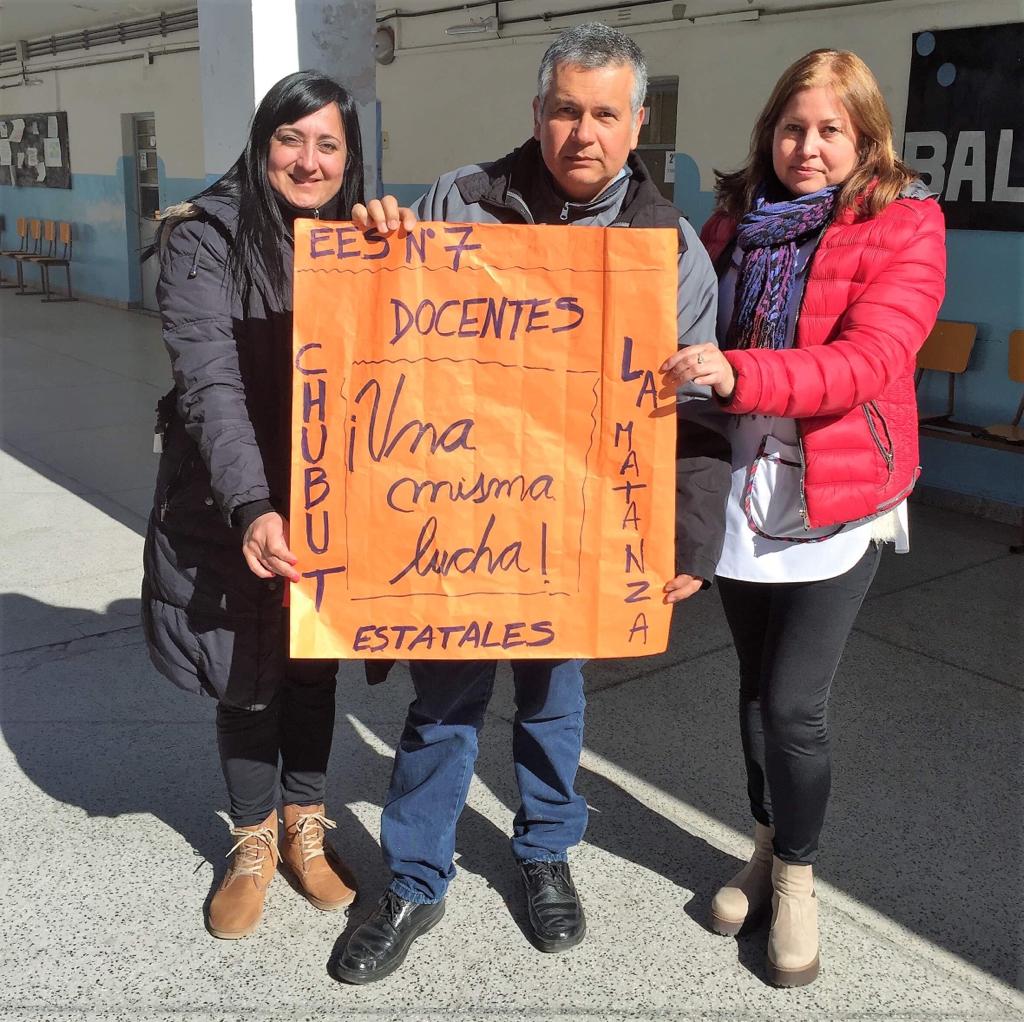 EES Nº 7
DOCENTES
CHUBUT
¡Una
misma
lucha!
LA MATANZA
ESTATALES
BAL